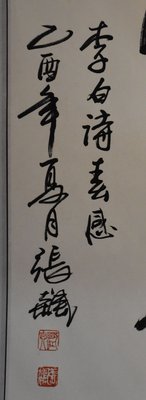 李白诗春感
乙酉年夏月張